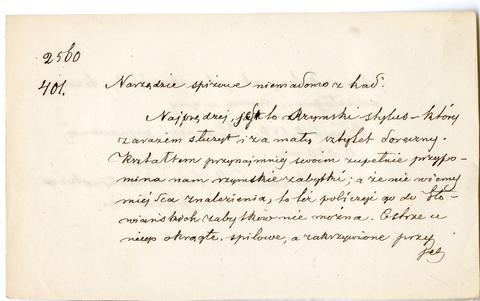 2560
401. Narzędzie spiżowe niewiadomo z kąd.
Najprędzej, jest to Rzymski stylus – który
zarazem służył, i za mały sztylet doręczny.
Kształtem przynajmniéj swoim zupełnie przypo-
mina nam rzymskie zabytki; a że nie wiemy
miéjsca znalezienia, to téż policzyć go do Sło-
wiańskich zabytków nie można. Ostrze u
niego okrągłe, spilowe, a zakrzywione przy